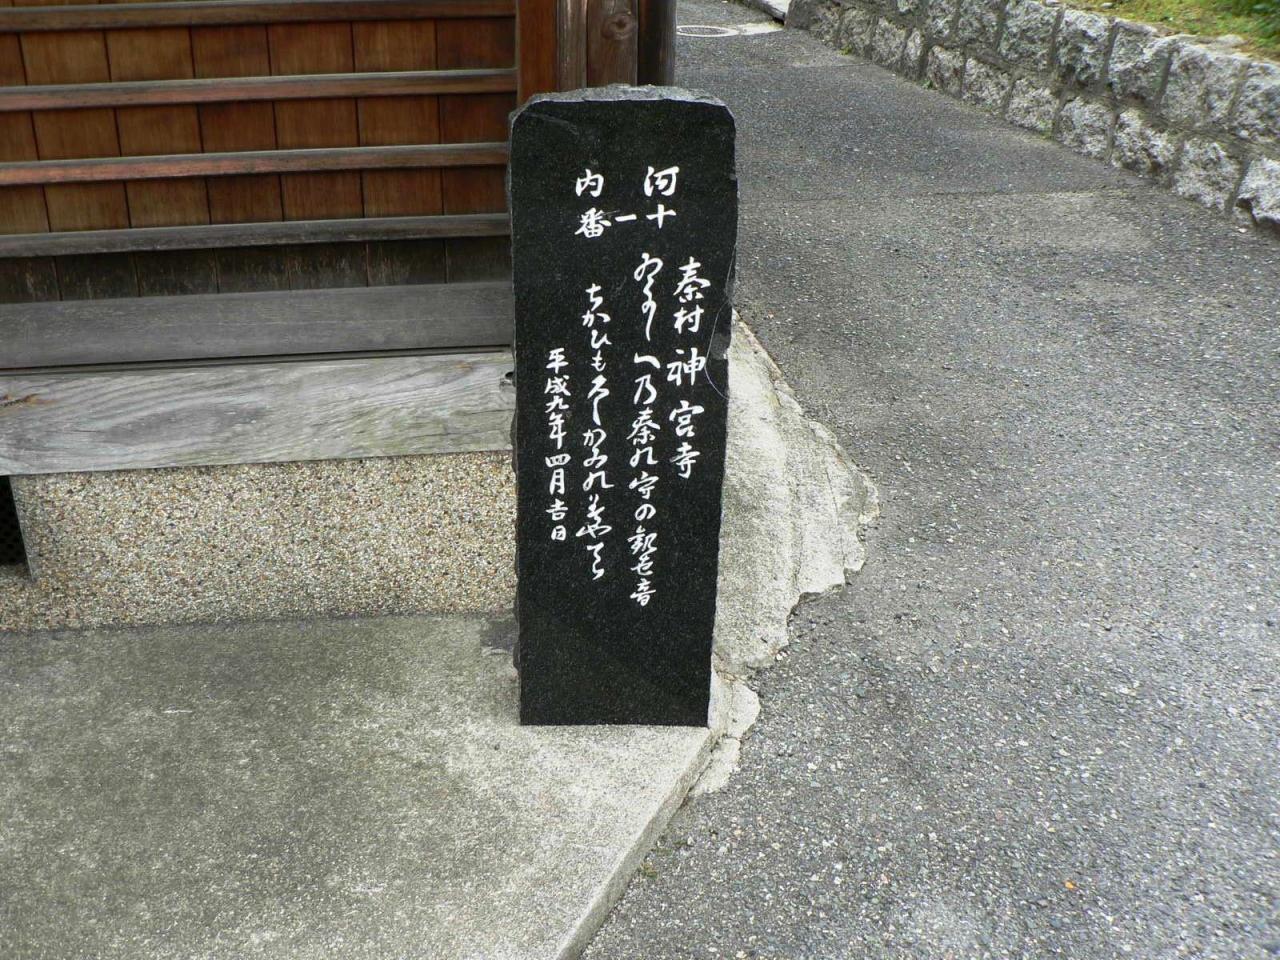 河内
十一番
秦村神宮寺
乃秦の守の観世音
ちかひも久しかみのみやてら
平成九年四月吉日